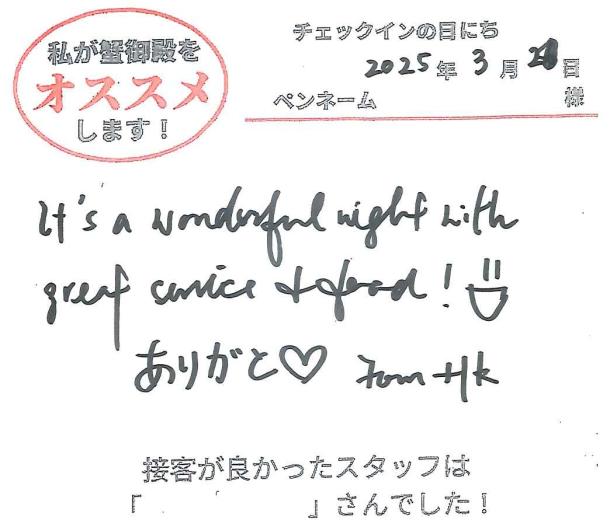 私が蟹御殿を
オススメ
します!
チェックインの日にち
2025年 3月 日
ペンネーム 様
It's a wonderful night with
great service + food!
ありがと♡ from HK
接客が良かったスタッフは
「 」さんでした!